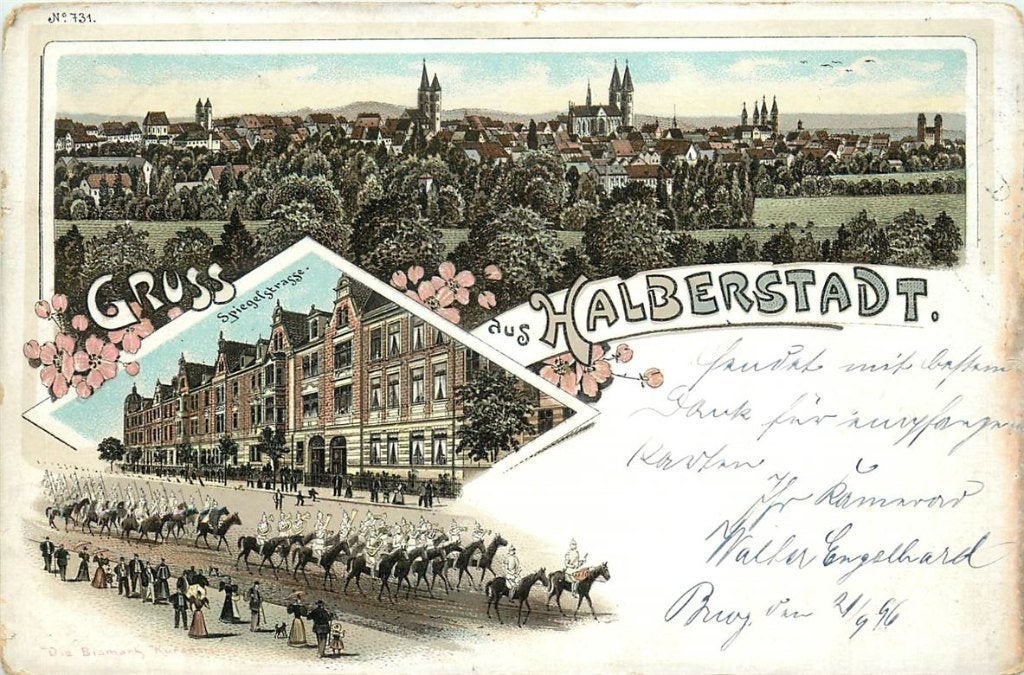 No 731.
GRUSS
aus HALBERSTADT.
Spiegelstrasse.
sendet mit bestem
Dank für empfangene
Karten
Ihr Kamerad
Walter Engelhard
Burg, den 21/9 96
"Die Bismark